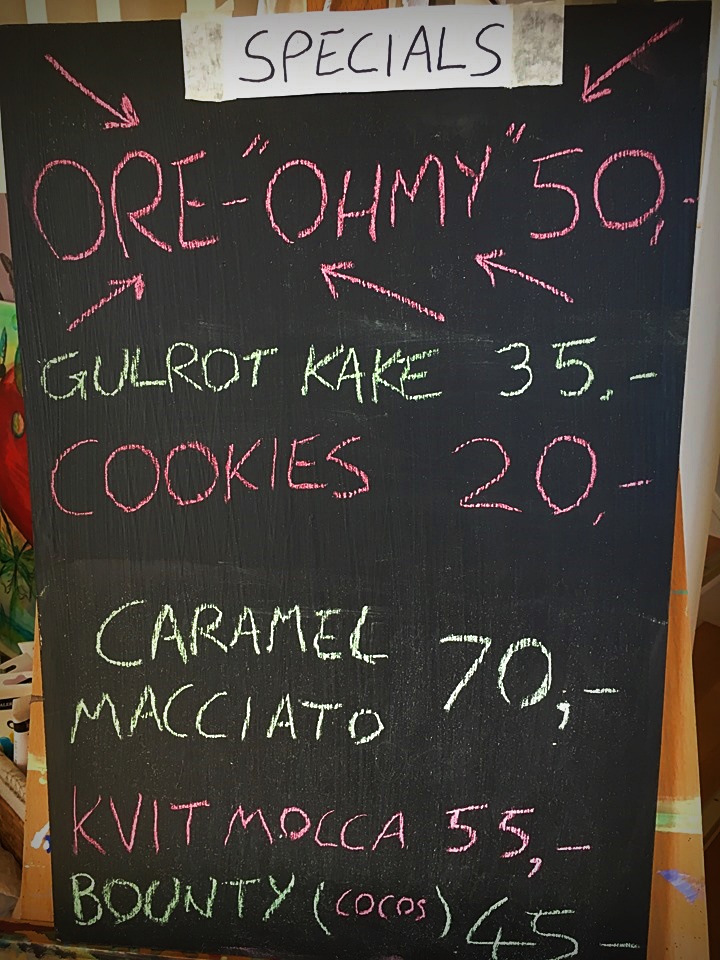 SPECIALS
ORE-"OHMY" 50,-
GULROT KAKE 35,-
COOKIES 20,-
CARAMEL
MACCIATO 70,-
KVIT MOCCA 55,-
BOUNTY (COCOS) 45-